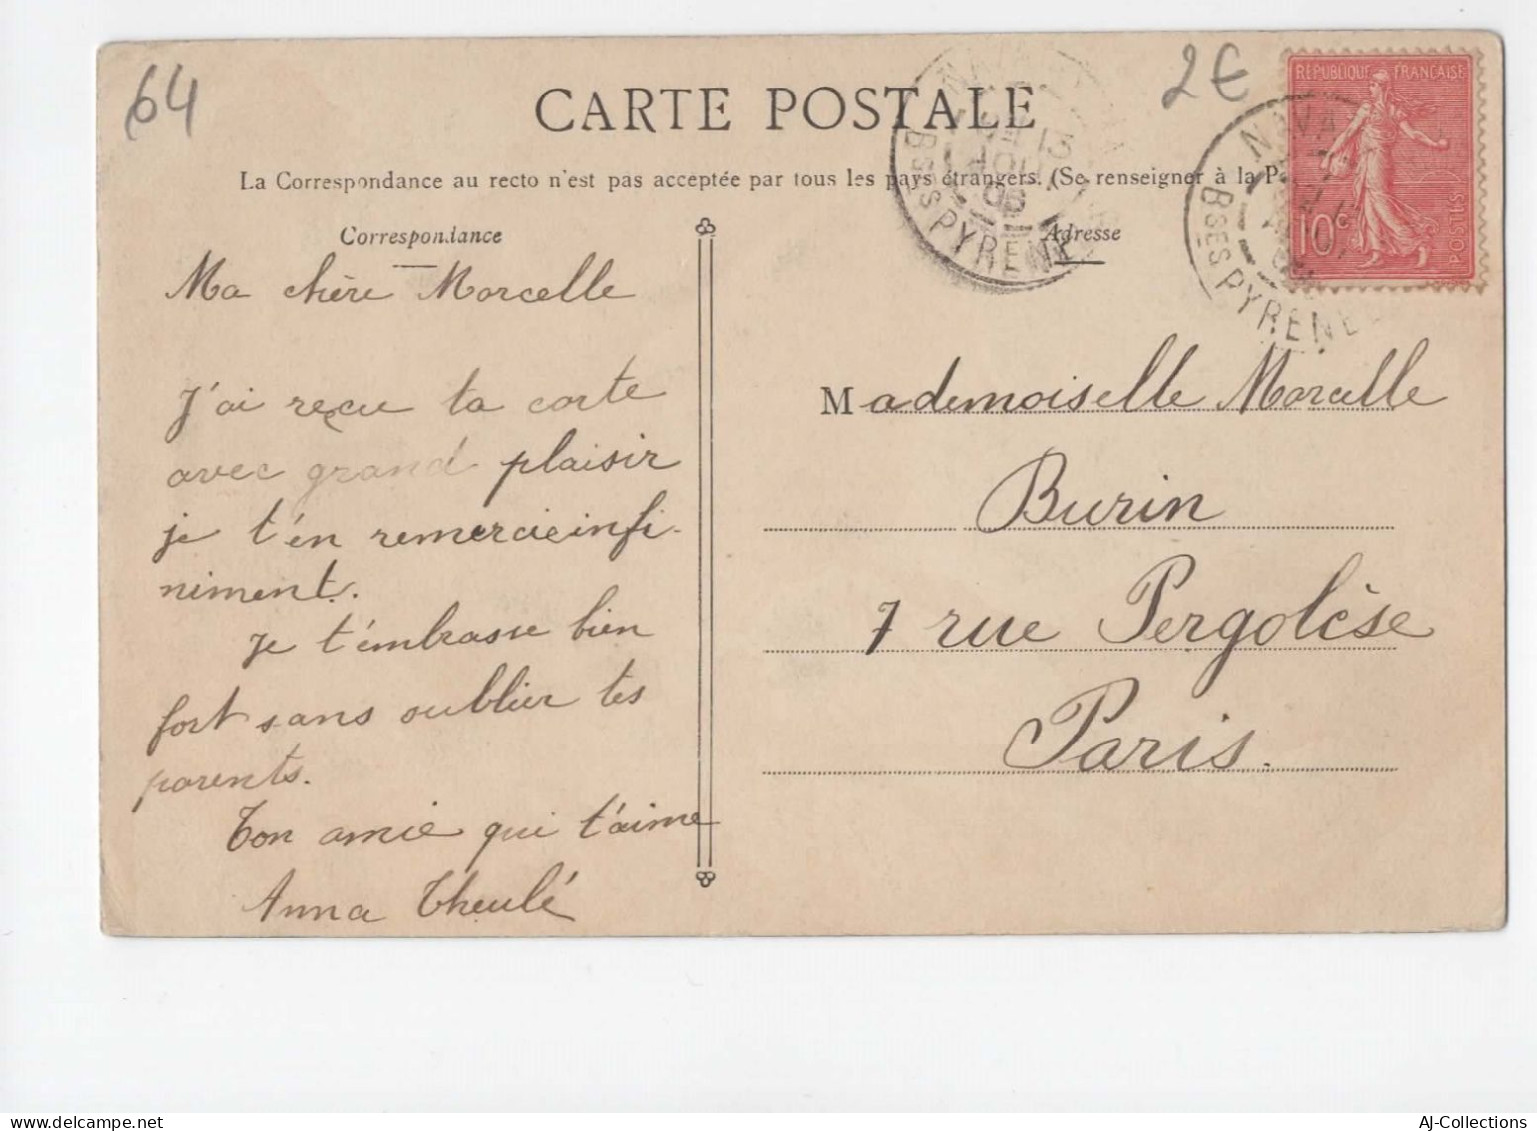 64
2€
CARTE POSTALE
REPUBLIQUE FRANÇAISE
10c
POSTES
Bses PYRENE
Bses PYRENEES
La Correspondance au recto n'est pas acceptée par tous les pays étrangers. (Se renseigner à la P
Correspondance
Adresse
Ma chère Marcelle
J'ai reçu ta carte
avec grand plaisir
je t'en remercie infi-
niment.
Je t'embrasse bien
fort sans oublier tes
parents.
Ton amie qui t'aime
Anna Theulé
Mademoiselle Marcelle
Burin
7 rue Pergolèse
Paris.
AJ-Collections